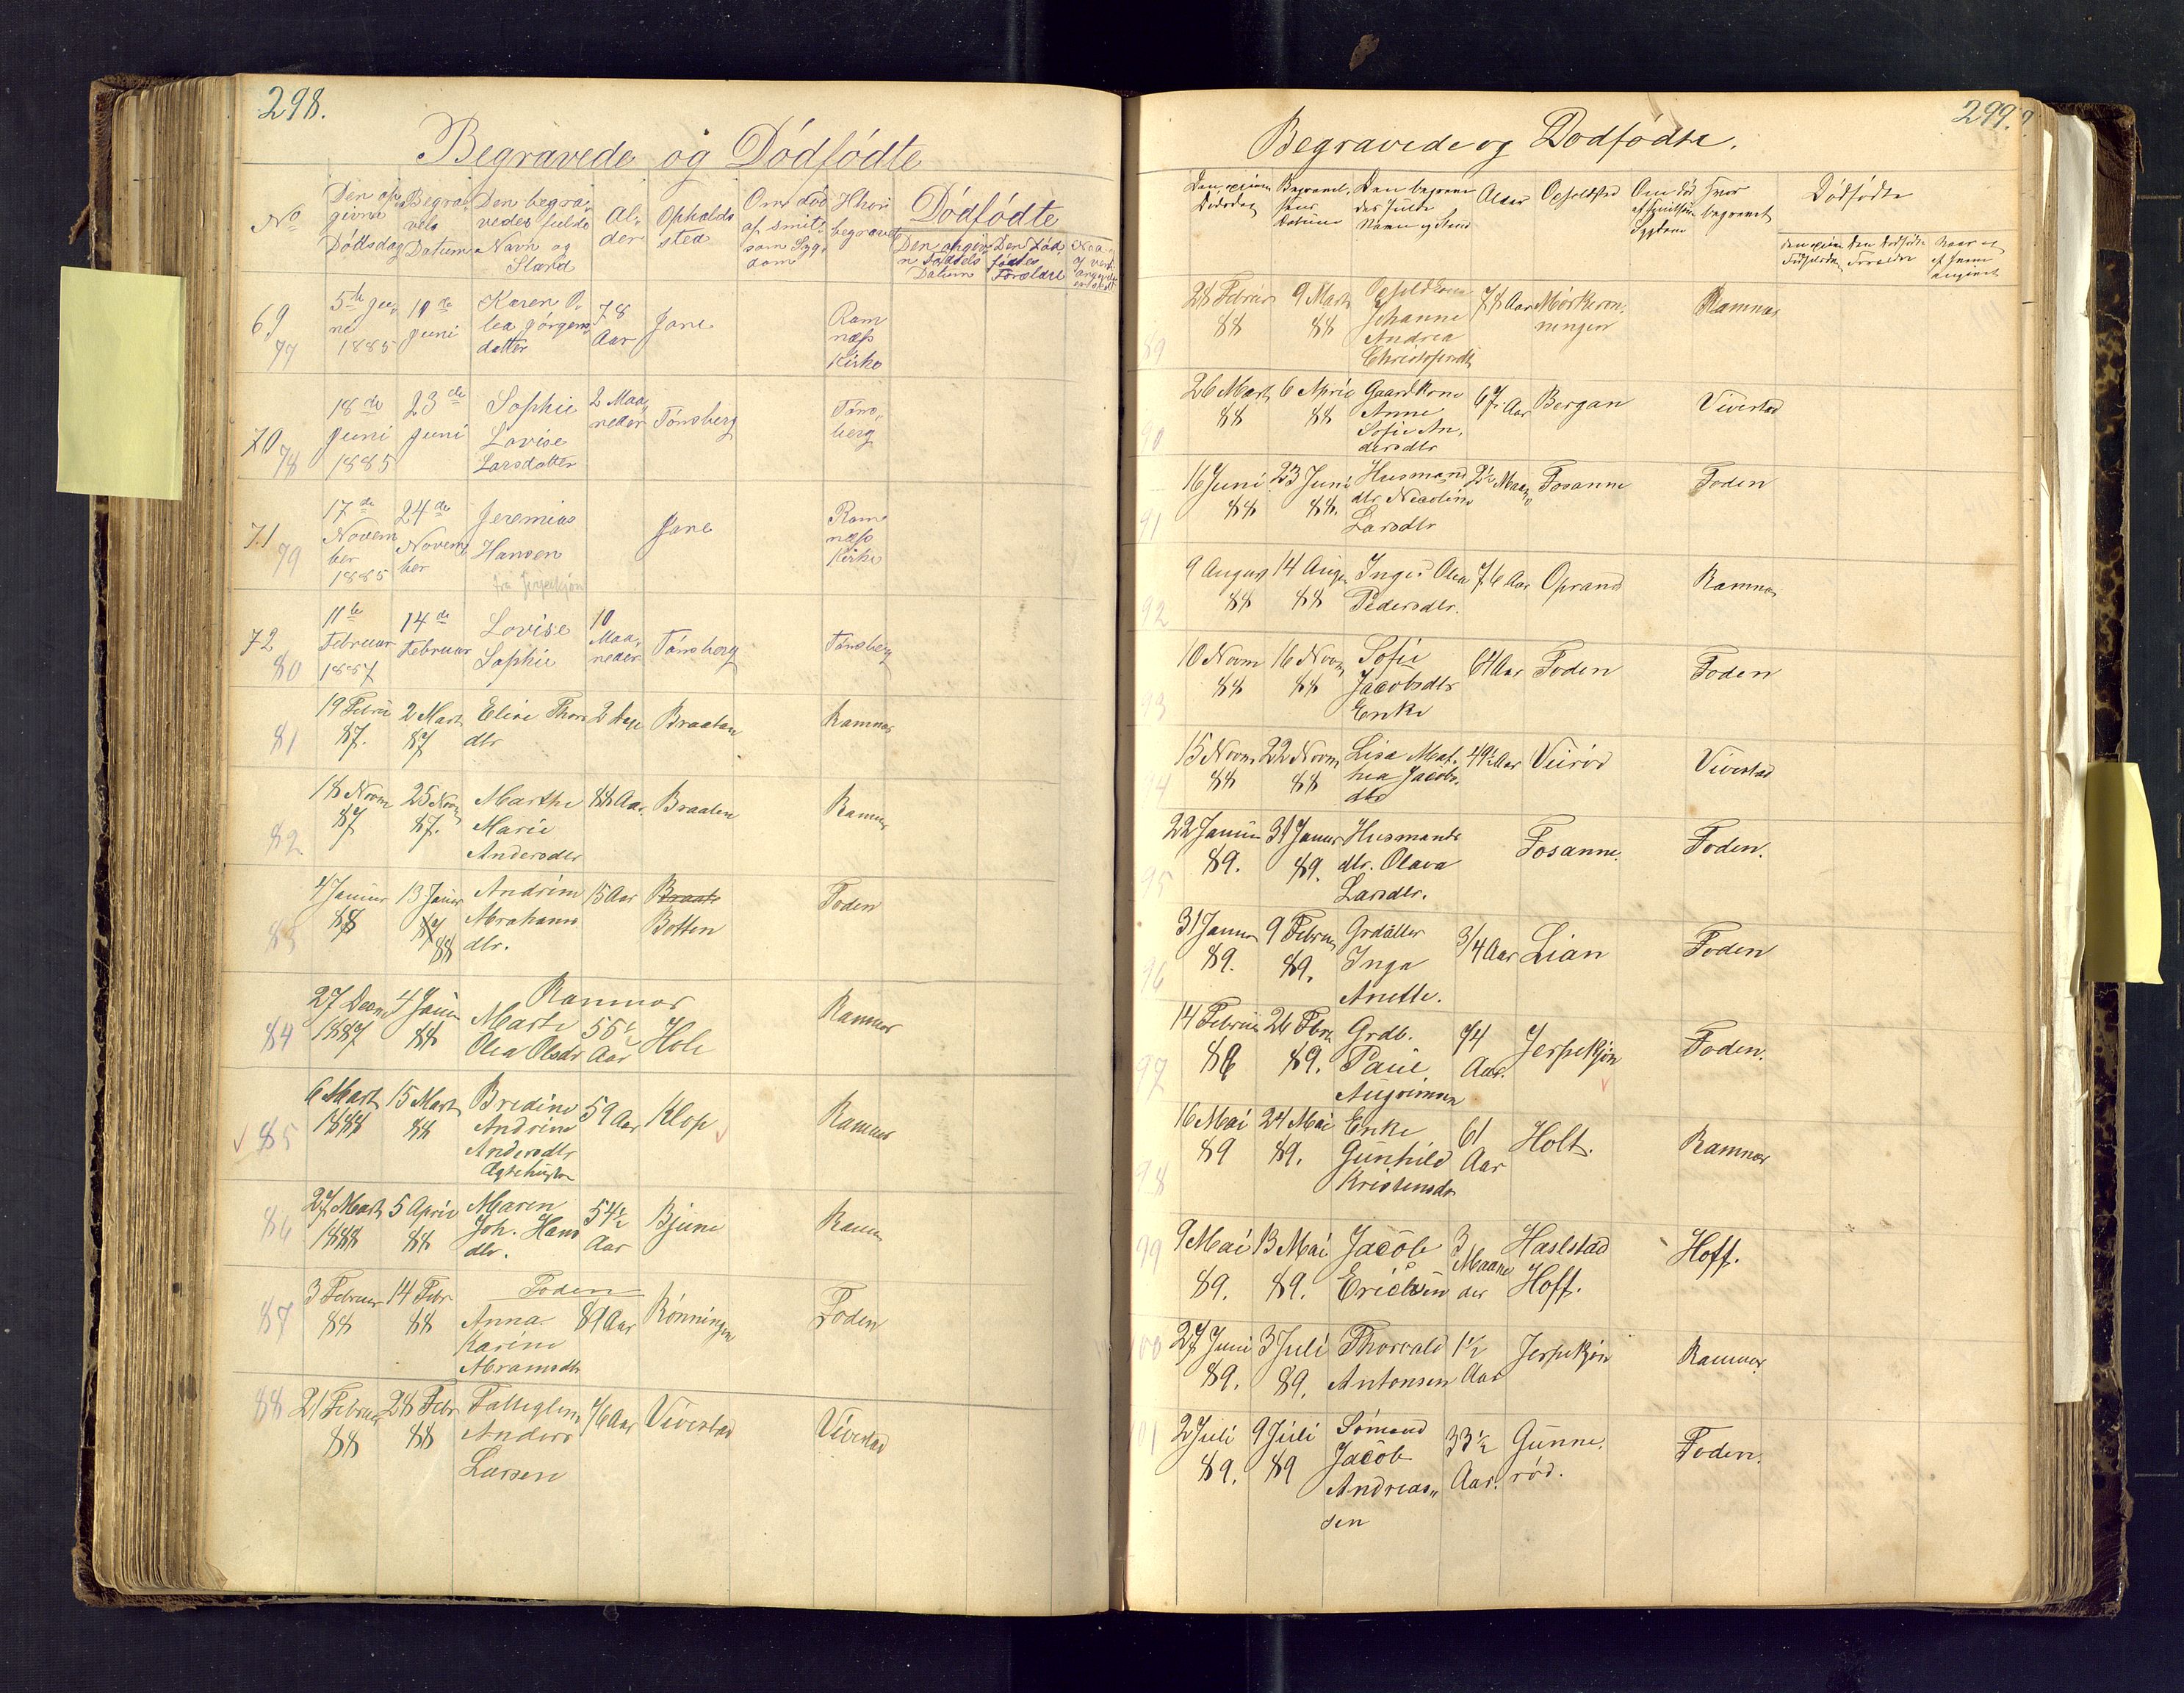 298.
Begravede og Dödfödte
No
Den op-
givne
Dödsdag
Begra-
vels
Datum
Den begra-
vedes fulde
Navn og
Stand
Al-
der
Opholds
sted
Om död
af smit-
som Syg-
dom
Hvor
begravet
Dödfödte
69
77
5te Ju-
ni
1885
10de
Juni
Karen O-
lea Jörgens-
datter
78
Aar
Jare
Ram
næss
Kirke
70
78
18de
Juni
1885
23de
Juni
Sophie
Lovise
Larsdatter
2 Maa-
neder
Tönsberg
Töns-
berg
71
79
17de
Novem
ber
1885
24de
Novem
ber
Jeremias
Hansen
fra Jerpekjön
Jare
Ram
næss
Kirke
72
80
11te
Februar
1887
14de
Februar
Lovise
Sophie
10
Maa-
neder
Tönsberg
Tönsberg
81
19 Febru
87.
2 Mart
87
Elise Thors
dtr
2 Dage
Braaten
Ramnæs
82
18 Novm
87
25 Novm
87.
Marthe
Marie
Andersdtr
88 Aar.
Braaten
Ramnæs
83
4 Januar
88
13 Januar
87
88
Andrine
Abrahams
dtr.
15 Aar
Braate
Botten
Foden
Ramnæs
84
27 Decm
1887
4 Janu
88
Marte
Olea Olsdtr
55½
Aar
Hole
Ramnæs
85
6 Mart
1888
15 Mart
88
Bredine
Andrine
Andersdtr
59 Aar
Klop
Ramnæs
86
27 Mart
1888
5 April
88
Maren
Joh. Hans
dtr.
54½
Aar
Bjune
Ramn
Foden
87
3 Februar
88
14 Febr
88
Anna
Karine
Abramsdtr
89 Aar
Rönningen
Foden
88
21 Februar
88
28 Febr
88
Fattiglem
Anders
Larsen
76 Aar
Vivestad
Vivestad
299.
Begravede og Dodfödte.
Alder
Opholdsted
Hvor
begravet
Dødfødte
89
28 Februar
88
9 Mart
88
Johanne
Andrea
Christofersdtr
78 Aar
Mörkeron-
ningen
Ramnæs
90
26 Mart
88
6 April
88
Gaardkone
Anne
Sofie An-
dersdtr
67 Aar
Bergan
Vivestad
91
16 Juni
88
23 Juni
88.
Husmands
dtr Nicoline
Larsdtr
2½ Maan
Fosanne
Foden
92
9 August
88
14 Aug
88
Inger Olea
Pedersdtr.
76 Aar
Oprand
Ramnæs
93
10 Novm
88
16 Novm
88
Sofie
Jacobsdtr
Enke
Foden
Foden
94
15 Novm
88
22 Novm
88
Lisa Mat-
hea Jacobs-
dtr
49½ Aar
Veiröd
Vivestad
95
22 Januar
89.
31 Januar
89.
Husmands
dtr. Olava
Larsdtr.
Fosanne.
Foden.
96
31 Januar
89.
9 Februar
89.
Inga
Anette.
3/4 Aar
Lian
Foden
97
14 Februar
89
26 Febr
89.
Grdb.
Paul
74
Aar.
Jerpekjön
Foden.
98
16 Mai
89
24 Mai
89.
Enke
Gunhild
Kristensdtr
61
Aar
Holt.
Ramnæs
99
9 Mai
89.
13 Mai
89.
Jacob
Ericksen
3
Maane
der
Haslestad
Hoff.
Hoff.
100
27 Juni
89.
3 Juli
89.
Thorvald
Antonsen
1½
Aar
Jerpekjön
Ramnæs
101
2 Juli
89.
9 Juli
89
Sömand
Jacob
Andreas„
sen
33½
Aar.
Gunne-
röd.
Foden.